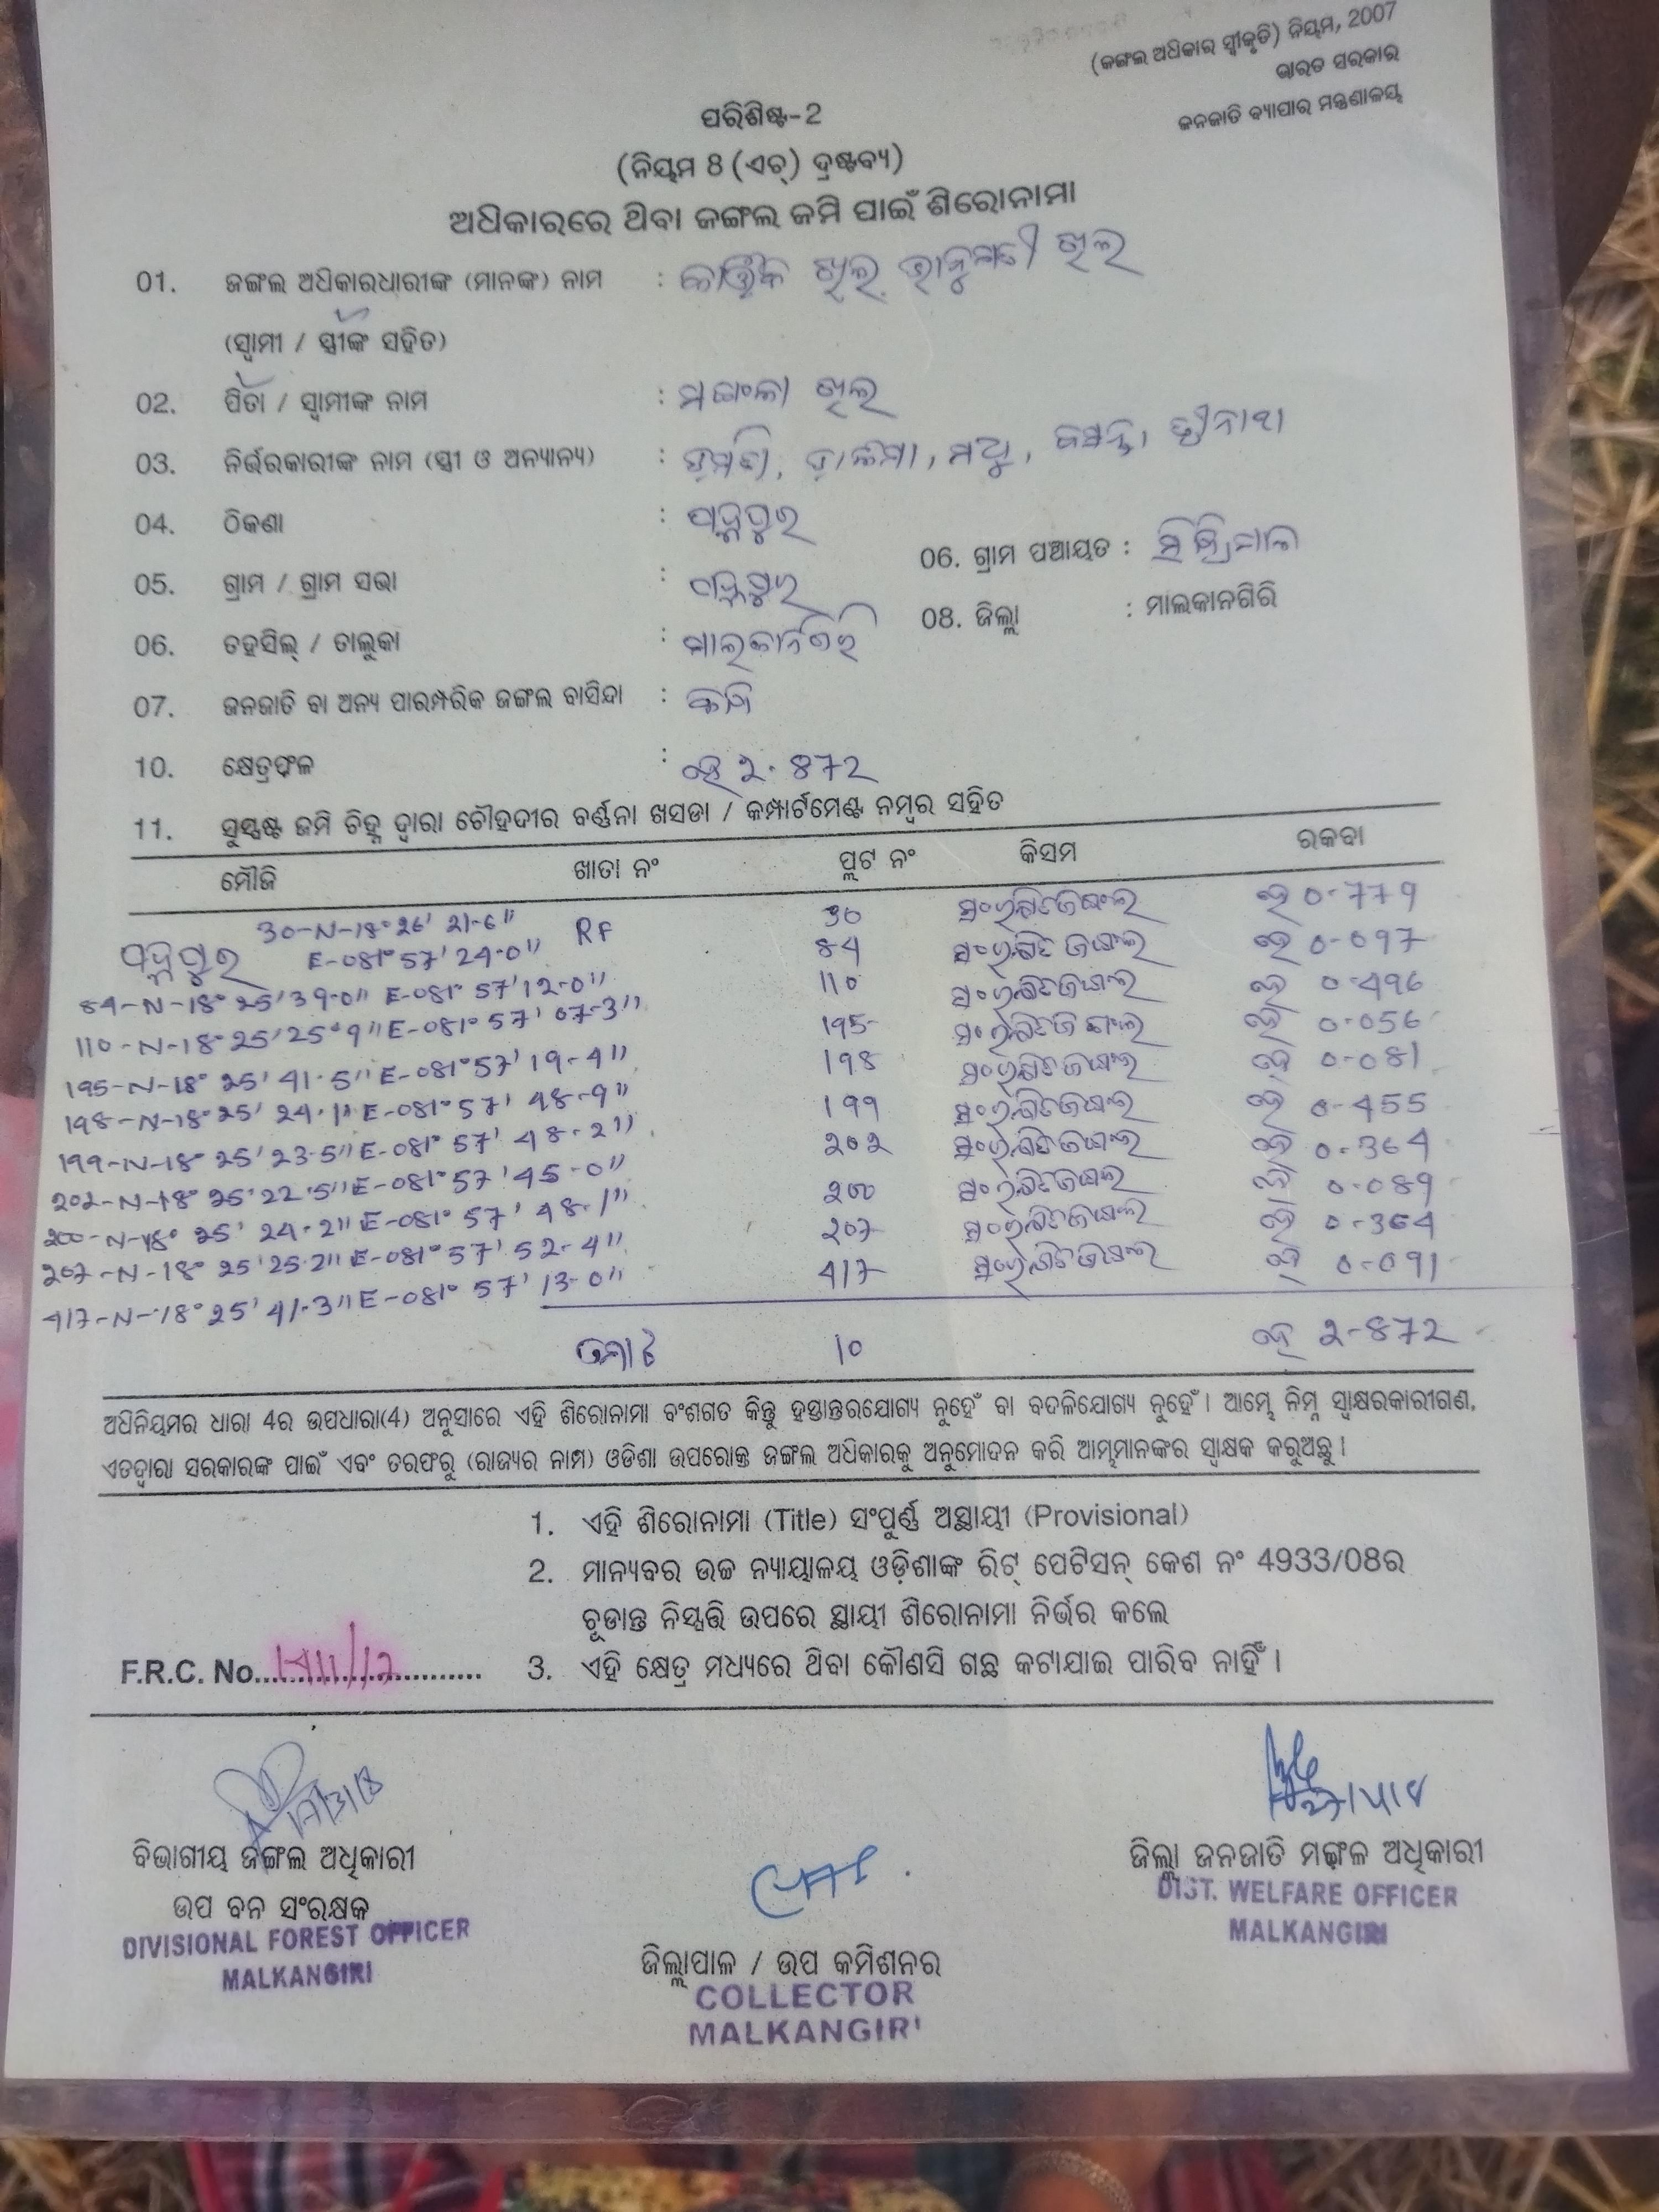 (ଜଙ୍ଗଲ ଅଧିକାର ସ୍ୱୀକୃତି) ନିୟମ, 2007
ଭାରତ ସରକାର
ଜନଜାତି ବ୍ୟାପାର ମନ୍ତ୍ରଣାଳୟ
ପରିଶିଷ୍ଟ-2
(ନିୟମ 8 (ଏଚ୍) ଦ୍ରଷ୍ଟବ୍ୟ)
ଅଧିକାରରେ ଥିବା ଜଙ୍ଗଲ ଜମି ପାଇଁ ଶିରୋନାମା
01. ଜଙ୍ଗଲ ଅଧିକାରଧାରୀଙ୍କ (ମାନଙ୍କ) ନାମ : କାର୍ତ୍ତିକ ଖିଲ, ଭାନୁମତୀ ଖିଲ
(ସ୍ୱାମୀ / ସ୍ତ୍ରୀଙ୍କ ସହିତ)
02. ପିତା / ସ୍ୱାମୀଙ୍କ ନାମ : ଖିଲ
03. ନିର୍ଭରକାରୀଙ୍କ ନାମ (ସ୍ତ୍ରୀ ଓ ଅନ୍ୟାନ୍ୟ) :
04. ଠିକଣା : ପଦ୍ମପୁର
05. ଗ୍ରାମ / ଗ୍ରାମ ସଭା : ପଦ୍ମପୁର 06. ଗ୍ରାମ ପଞ୍ଚାୟତ :
06. ତହସିଲ୍ / ତାଲୁକା : ମାଲକାନଗିରି 08. ଜିଲ୍ଲା : ମାଲକାନଗିରି
07. ଜନଜାତି ବା ଅନ୍ୟ ପାରମ୍ପରିକ ଜଙ୍ଗଲ ବାସିନ୍ଦା :
10. କ୍ଷେତ୍ରଫଳ : ହେ 2.872
11. ସୁସ୍ପଷ୍ଟ ଜମି ଚିହ୍ନ ଦ୍ୱାରା ଚୌହଦୀର ବର୍ଣ୍ଣନା ଖସଡା / କମ୍ପାର୍ଟମେଣ୍ଟ ନମ୍ବର ସହିତ
ମୌଜି ଖାତା ନଂ ପ୍ଲଟ ନଂ କିସମ ରକବା
30-N-18° 26' 21-6" RF 30 ସଂରକ୍ଷିତ ଜଙ୍ଗଲ ହେ 0-779
ପଦ୍ମପୁର E-081° 57' 24-0" 84 ସଂରକ୍ଷିତ ଜଙ୍ଗଲ ହେ 0-097
84-N-18° 25' 39-0" E-081° 57' 12-0" 110 ସଂରକ୍ଷିତ ଜଙ୍ଗଲ ହେ 0-496
110-N-18° 25' 25-9" E-081° 57' 07-3" 195 ସଂରକ୍ଷିତ ଜଙ୍ଗଲ ହେ 0-056
195-N-18° 25' 41-5" E-081° 57' 19-4" 198 ସଂରକ୍ଷିତ ଜଙ୍ଗଲ ହେ 0-081
198-N-18° 25' 24-1" E-081° 57' 48-9" 199 ସଂରକ୍ଷିତ ଜଙ୍ଗଲ ହେ 0-455
199-N-18° 25' 23-5" E-081° 57' 48-2" 202 ସଂରକ୍ଷିତ ଜଙ୍ଗଲ ହେ 0-364
202-N-18° 25' 22-5" E-081° 57' 45-0" 200 ସଂରକ୍ଷିତ ଜଙ୍ଗଲ ହେ 0-089
200-N-18° 25' 24-2" E-081° 57' 48-1" 207 ସଂରକ୍ଷିତ ଜଙ୍ଗଲ ହେ 0-364
207-N-18° 25' 25-2" E-081° 57' 52-4" 417 ସଂରକ୍ଷିତ ଜଙ୍ଗଲ ହେ 0-091
417-N-18° 25' 41-3" E-081° 57' 13-0"
ମୋଟ 10 ହେ 2-872
ଅଧିନିୟମର ଧାରା 4ର ଉପଧାରା(4) ଅନୁସାରେ ଏହି ଶିରୋନାମା ବଂଶଗତ କିନ୍ତୁ ହସ୍ତାନ୍ତରଯୋଗ୍ୟ ନୁହେଁ ବା ବଦଳିଯୋଗ୍ୟ ନୁହେଁ । ଆମ୍ଭେ ନିମ୍ନ ସ୍ୱାକ୍ଷରକାରୀଗଣ,
ଏତଦ୍ୱାରା ସରକାରଙ୍କ ପାଇଁ ଏବଂ ତରଫରୁ (ରାଜ୍ୟର ନାମ) ଓଡିଶା ଉପରୋକ୍ତ ଜଙ୍ଗଲ ଅଧିକାରକୁ ଅନୁମୋଦନ କରି ଆମ୍ଭମାନଙ୍କର ସ୍ୱାକ୍ଷକ କରୁଅଛୁ ।
1. ଏହି ଶିରୋନାମା (Title) ସଂପୁର୍ଣ୍ଣ ଅସ୍ଥାୟୀ (Provisional)
2. ମାନ୍ୟବର ଉଚ୍ଚ ନ୍ୟାୟାଳୟ ଓଡ଼ିଶାଙ୍କ ରିଟ୍ ପେଟିସନ୍ କେଶ ନଂ 4933/08ର
ଚୂଡାନ୍ତ ନିସ୍ପତ୍ତି ଉପରେ ସ୍ଥାୟୀ ଶିରୋନାମା ନିର୍ଭର କଲେ
F.R.C. No. 3. ଏହି କ୍ଷେତ୍ର ମଧ୍ୟରେ ଥିବା କୌଣସି ଗଛ କଟାଯାଇ ପାରିବ ନାହିଁ ।
ବିଭାଗୀୟ ଜଙ୍ଗଲ ଅଧିକାରୀ
ଉପ ବନ ସଂରକ୍ଷକ
DIVISIONAL FOREST OFFICER
MALKANGIRI
ଜିଲ୍ଲାପାଳ / ଉପ କମିଶନର
COLLECTOR
MALKANGIRI
ଜିଲ୍ଲା ଜନଜାତି ମଙ୍ଗଳ ଅଧିକାରୀ
DIST. WELFARE OFFICER
MALKANGIRI